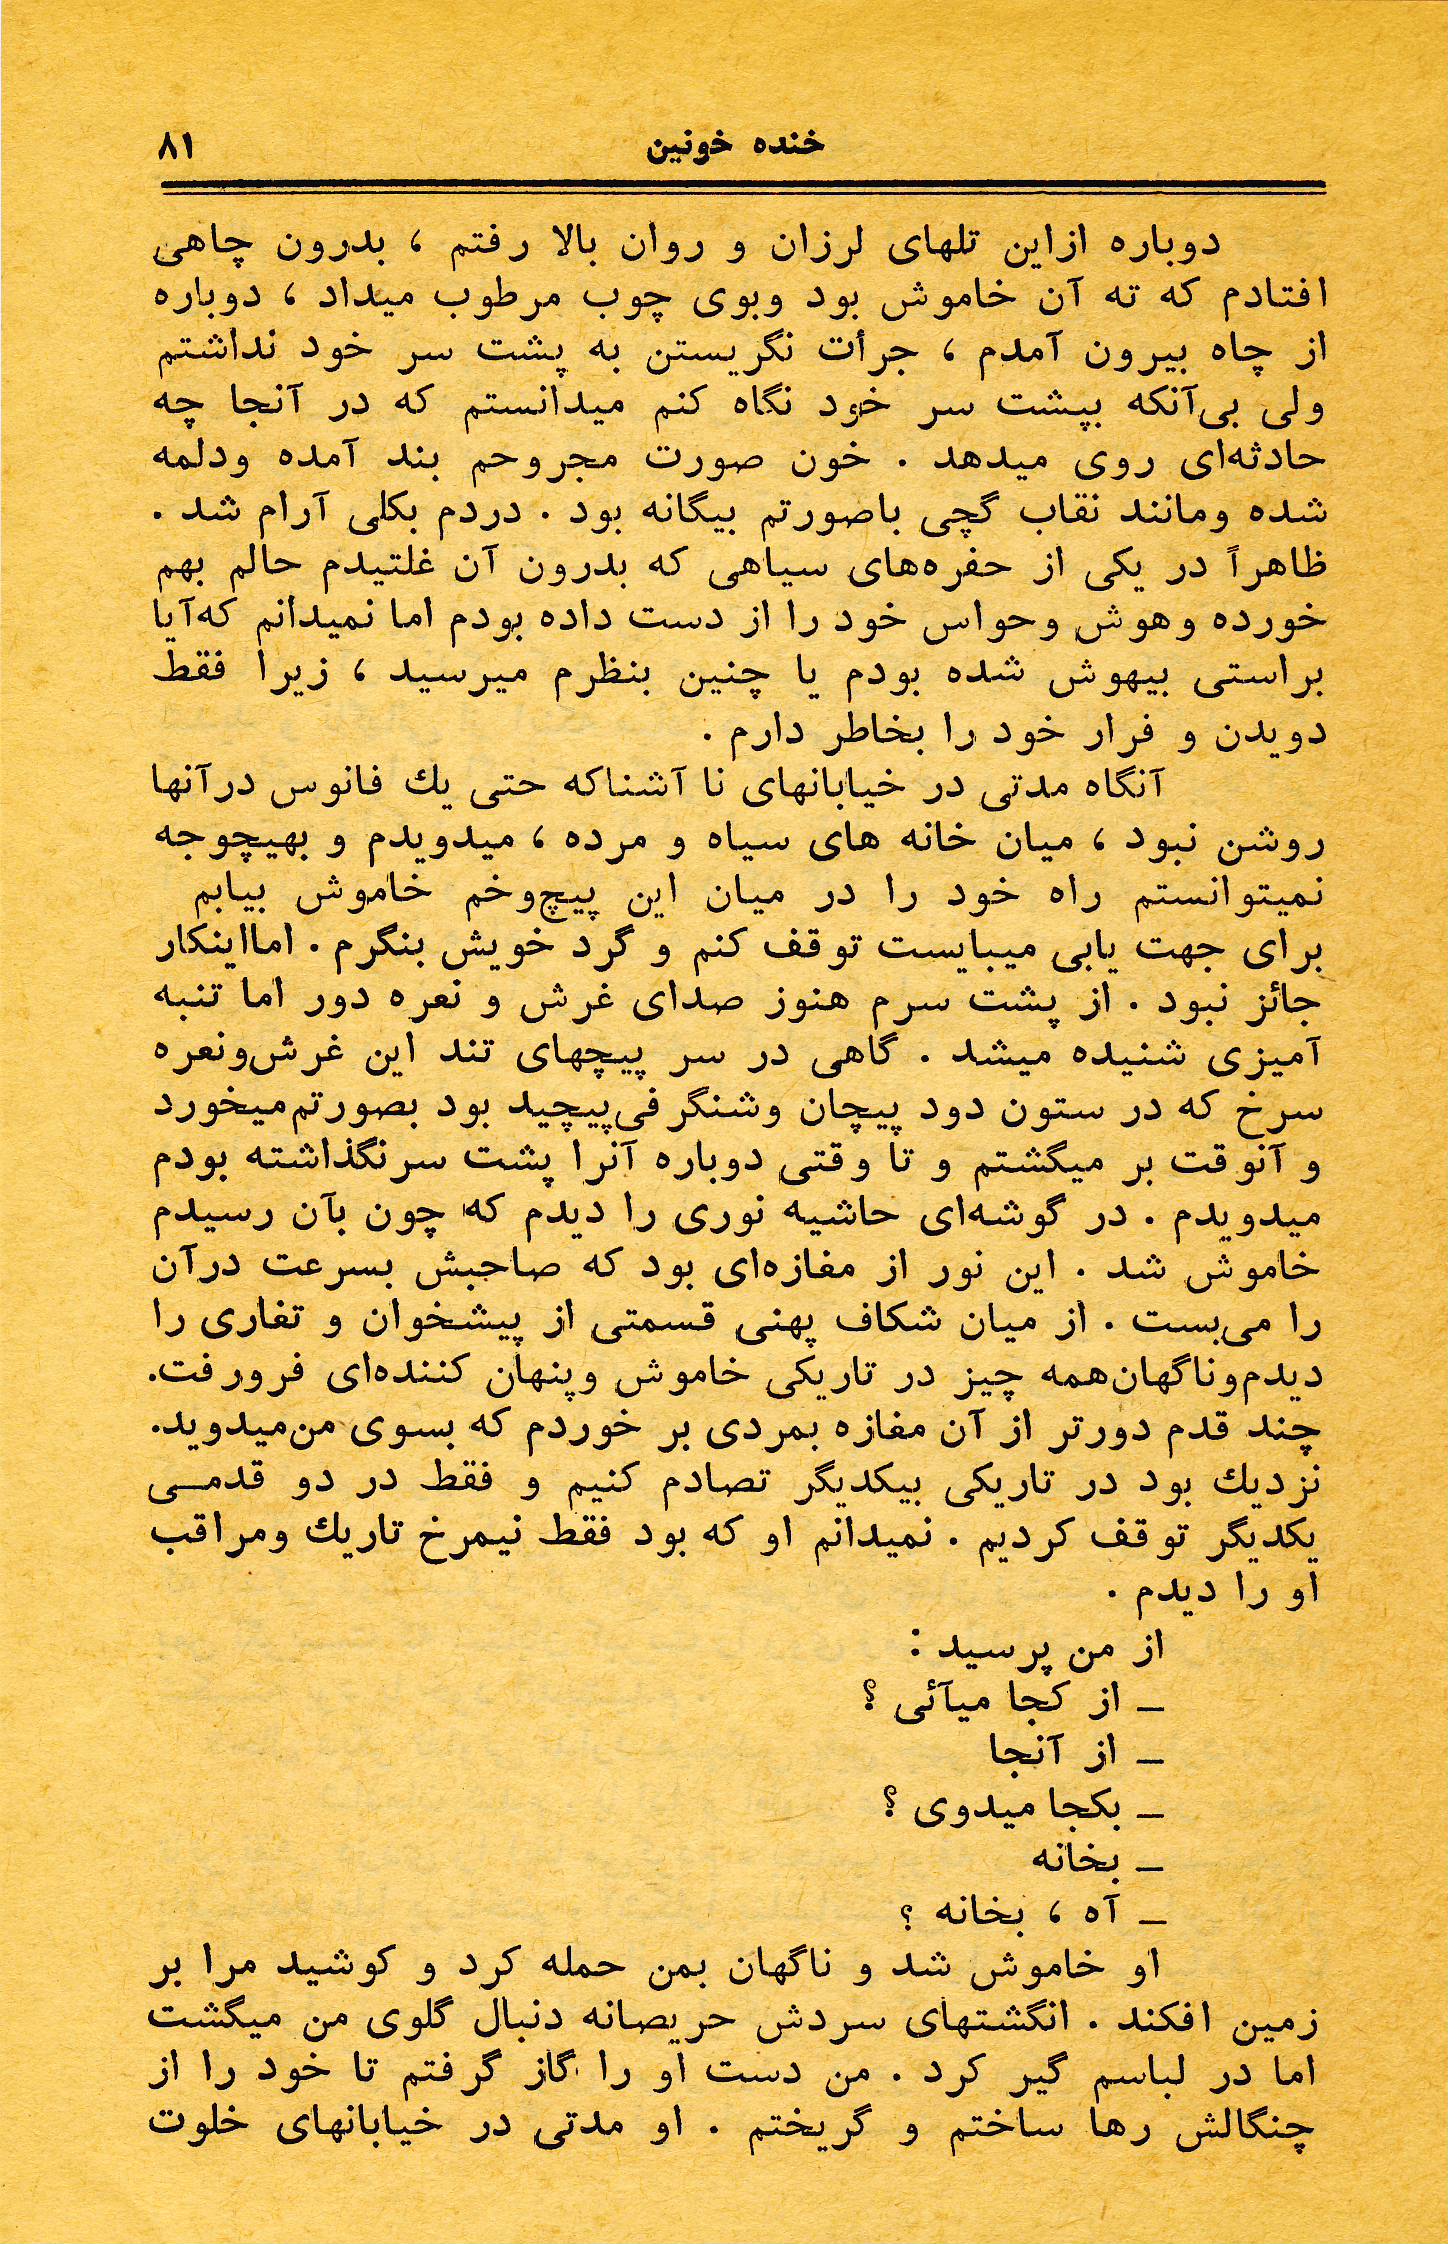 خنده خونین ۸۱
دوباره ازاین تلهای لرزان و روان بالا رفتم ، بدرون چاهی
افتادم که ته آن خاموش بود وبوی چوب مرطوب میداد ، دوباره
از چاه بیرون آمدم ، جرأت نگریستن به پشت سر خود نداشتم
ولی بی‌آنکه بپشت سر خود نگاه کنم میدانستم که در آنجا چه
حادثه‌ای روی میدهد . خون صورت مجروحم بند آمده ودلمه
شده ومانند نقاب گچی باصورتم بیگانه بود . دردم بکلی آرام شد .
ظاهراً در یکی از حفره‌های سیاهی که بدرون آن غلتیدم حالم بهم
خورده وهوش وحواس خود را از دست داده بودم اما نمیدانم که‌آیا
براستی بیهوش شده بودم یا چنین بنظرم میرسید ، زیرا فقط
دویدن و فرار خود را بخاطر دارم .
آنگاه مدتی در خیابانهای نا آشناکه حتی یك فانوس درآنها
روشن نبود ، میان خانه های سیاه و مرده ، میدویدم و بهیچوجه
نمیتوانستم راه خود را در میان این پیچ‌وخم خاموش بیابم
برای جهت یابی میبایست توقف کنم و گرد خویش بنگرم . امااینکار
جائز نبود . از پشت سرم هنوز صدای غرش و نعره دور اما تنبه
آمیزی شنیده میشد . گاهی در سر پیچهای تند این غرش‌ونعره
سرخ که در ستون دود پیچان وشنگرفی‌پیچید بود بصورتم‌میخورد
و آنوقت بر میگشتم و تا وقتی دوباره آنرا پشت سرنگذاشته بودم
میدویدم . در گوشه‌ای حاشیه نوری را دیدم که چون بآن رسیدم
خاموش شد . این نور از مغازه‌ای بود که صاحبش بسرعت درآن
را می‌بست . از میان شکاف پهنی قسمتی از پیشخوان و تغاری را
دیدم‌وناگهان‌همه چیز در تاریکی خاموش وپنهان کننده‌ای فرورفت.
چند قدم دورتر از آن مغازه بمردی بر خوردم که بسوی من‌میدوید.
نزدیك بود در تاریکی بیکدیگر تصادم کنیم و فقط در دو قدمـی
یکدیگر توقف کردیم . نمیدانم او که بود فقط نیمرخ تاریك ومراقب
او را دیدم .
از من پرسید :
ـ از کجا میآئی ؟
ـ از آنجا
ـ بکجا میدوی ؟
ـ بخانه
ـ آه ، بخانه ؟
او خاموش شد و ناگهان بمن حمله کرد و کوشید مرا بر
زمین افکند . انگشتهای سردش حریصانه دنبال گلوی من میگشت
اما در لباسم گیر کرد . من دست او را گاز گرفتم تا خود را از
چنگالش رها ساختم و گریختم . او مدتی در خیابانهای خلوت